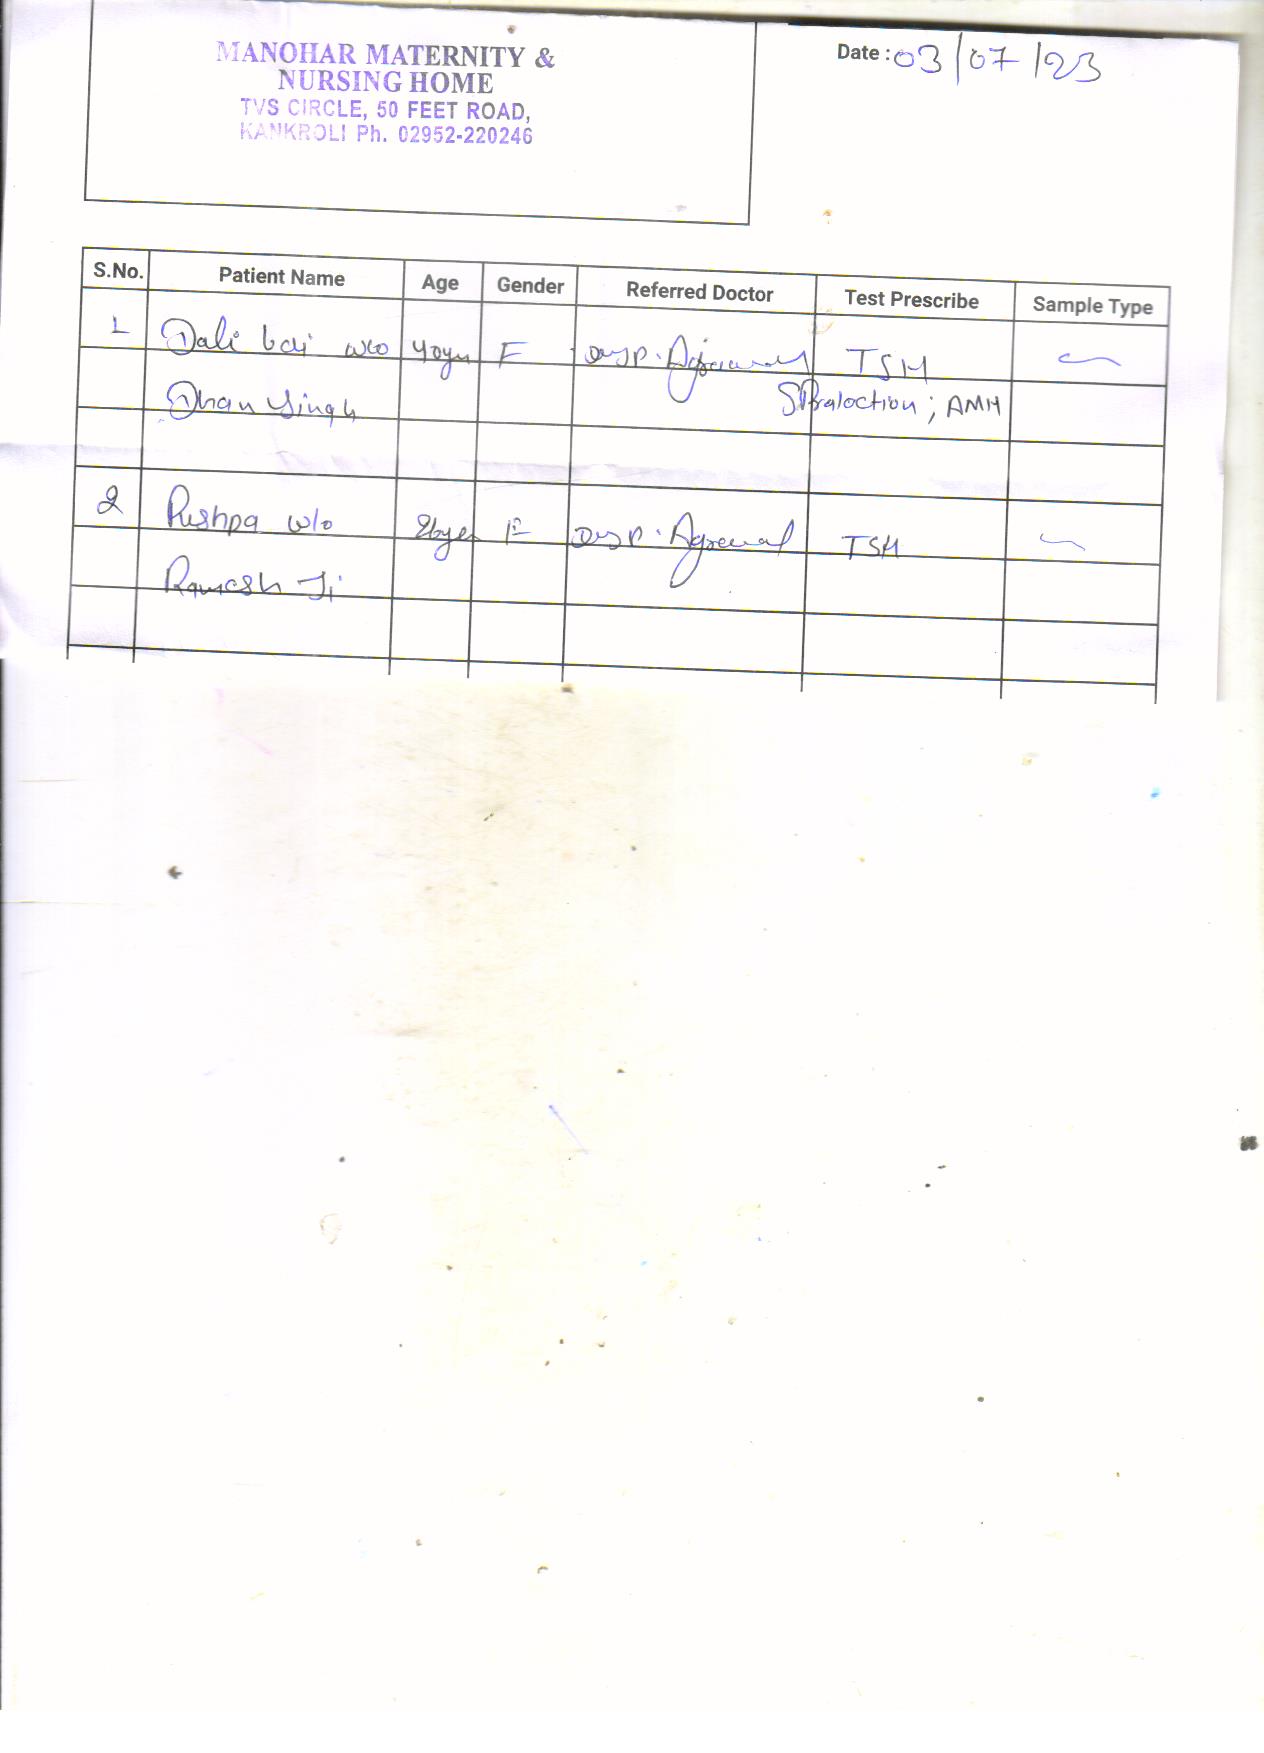 MANOHAR MATERNITY &
NURSING HOME
TVS CIRCLE, 50 FEET ROAD,
KANKROLI Ph. 02952-220246
Date : 03/07/23
S.No. Patient Name Age Gender Referred Doctor Test Prescribe Sample Type
1 Dali bai w/o 40yr F Agrawal TSH
Dhan Singh S Pralaction ; AMH
2 Pushpa w/o F Agrawal TSH
Ramesh Ji